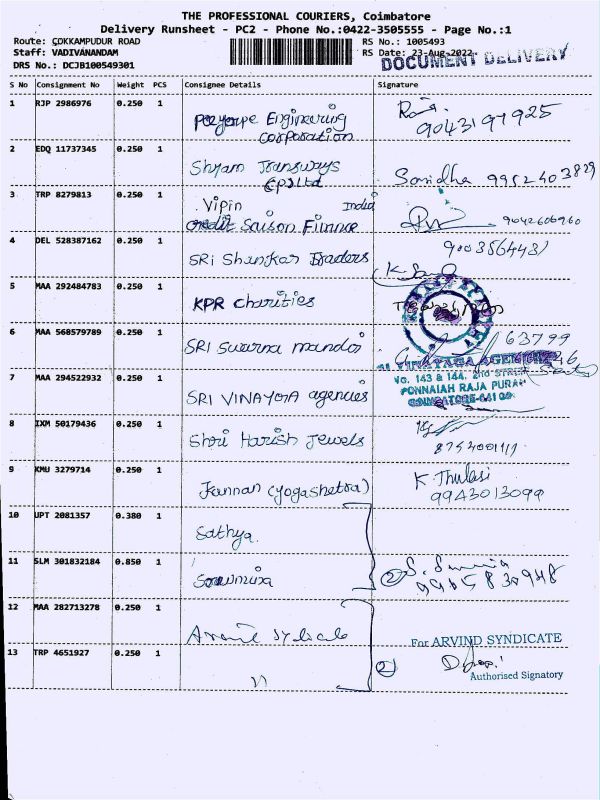 THE PROFESSIONAL COURIERS, Coimbatore
Delivery Runsheet - PC2 - Phone No.:0422-3505555 - Page No.:1
Route: COKKAMPUDUR ROAD
RS No.: 1005493
Staff: VADIVANANDAM
RS Date: 23-Aug-2022
DRS No.: DCJB100549301
DOCUMENT DELIVERY
S No Consignment No Weight PCS Consignee Details Signature
1 RJP 2986976 0.250 1 Engineering
corporation
9043197925
2 EDQ 11737345 0.250 1 Shyam Transways
CPJ Ltd
9952403829
3 TRP 8279813 0.250 1 Vipin India
credit Saison Finance
9042606960
4 DEL 528387162 0.250 1 SRi Shankar Traders
5 MAA 292484783 0.250 1 KPR charities
6 MAA 568579789 0.250 1 SRI Swarna
63799
SRI VINAYAGA AGENCIES
No. 143 & 144, 2nd STREET
PONNAIAH RAJA PURAM
COIMBATORE-641 001
7 MAA 294522932 0.250 1 SRI VINAYGA agencies
8 IXM 50179436 0.250 1 Shri Harish Jewels
9 KMU 3279714 0.250 1 Jannan (yogashetra)
K. Thulasi
9943013099
10 UPT 2081357 0.380 1 Sathya.
11 SLM 301832184 0.850 1
2
9965830948
12 MAA 282713278 0.250 1
For ARVIND SYNDICATE
13 TRP 4651927 0.250 1 "
2
Authorised Signatory